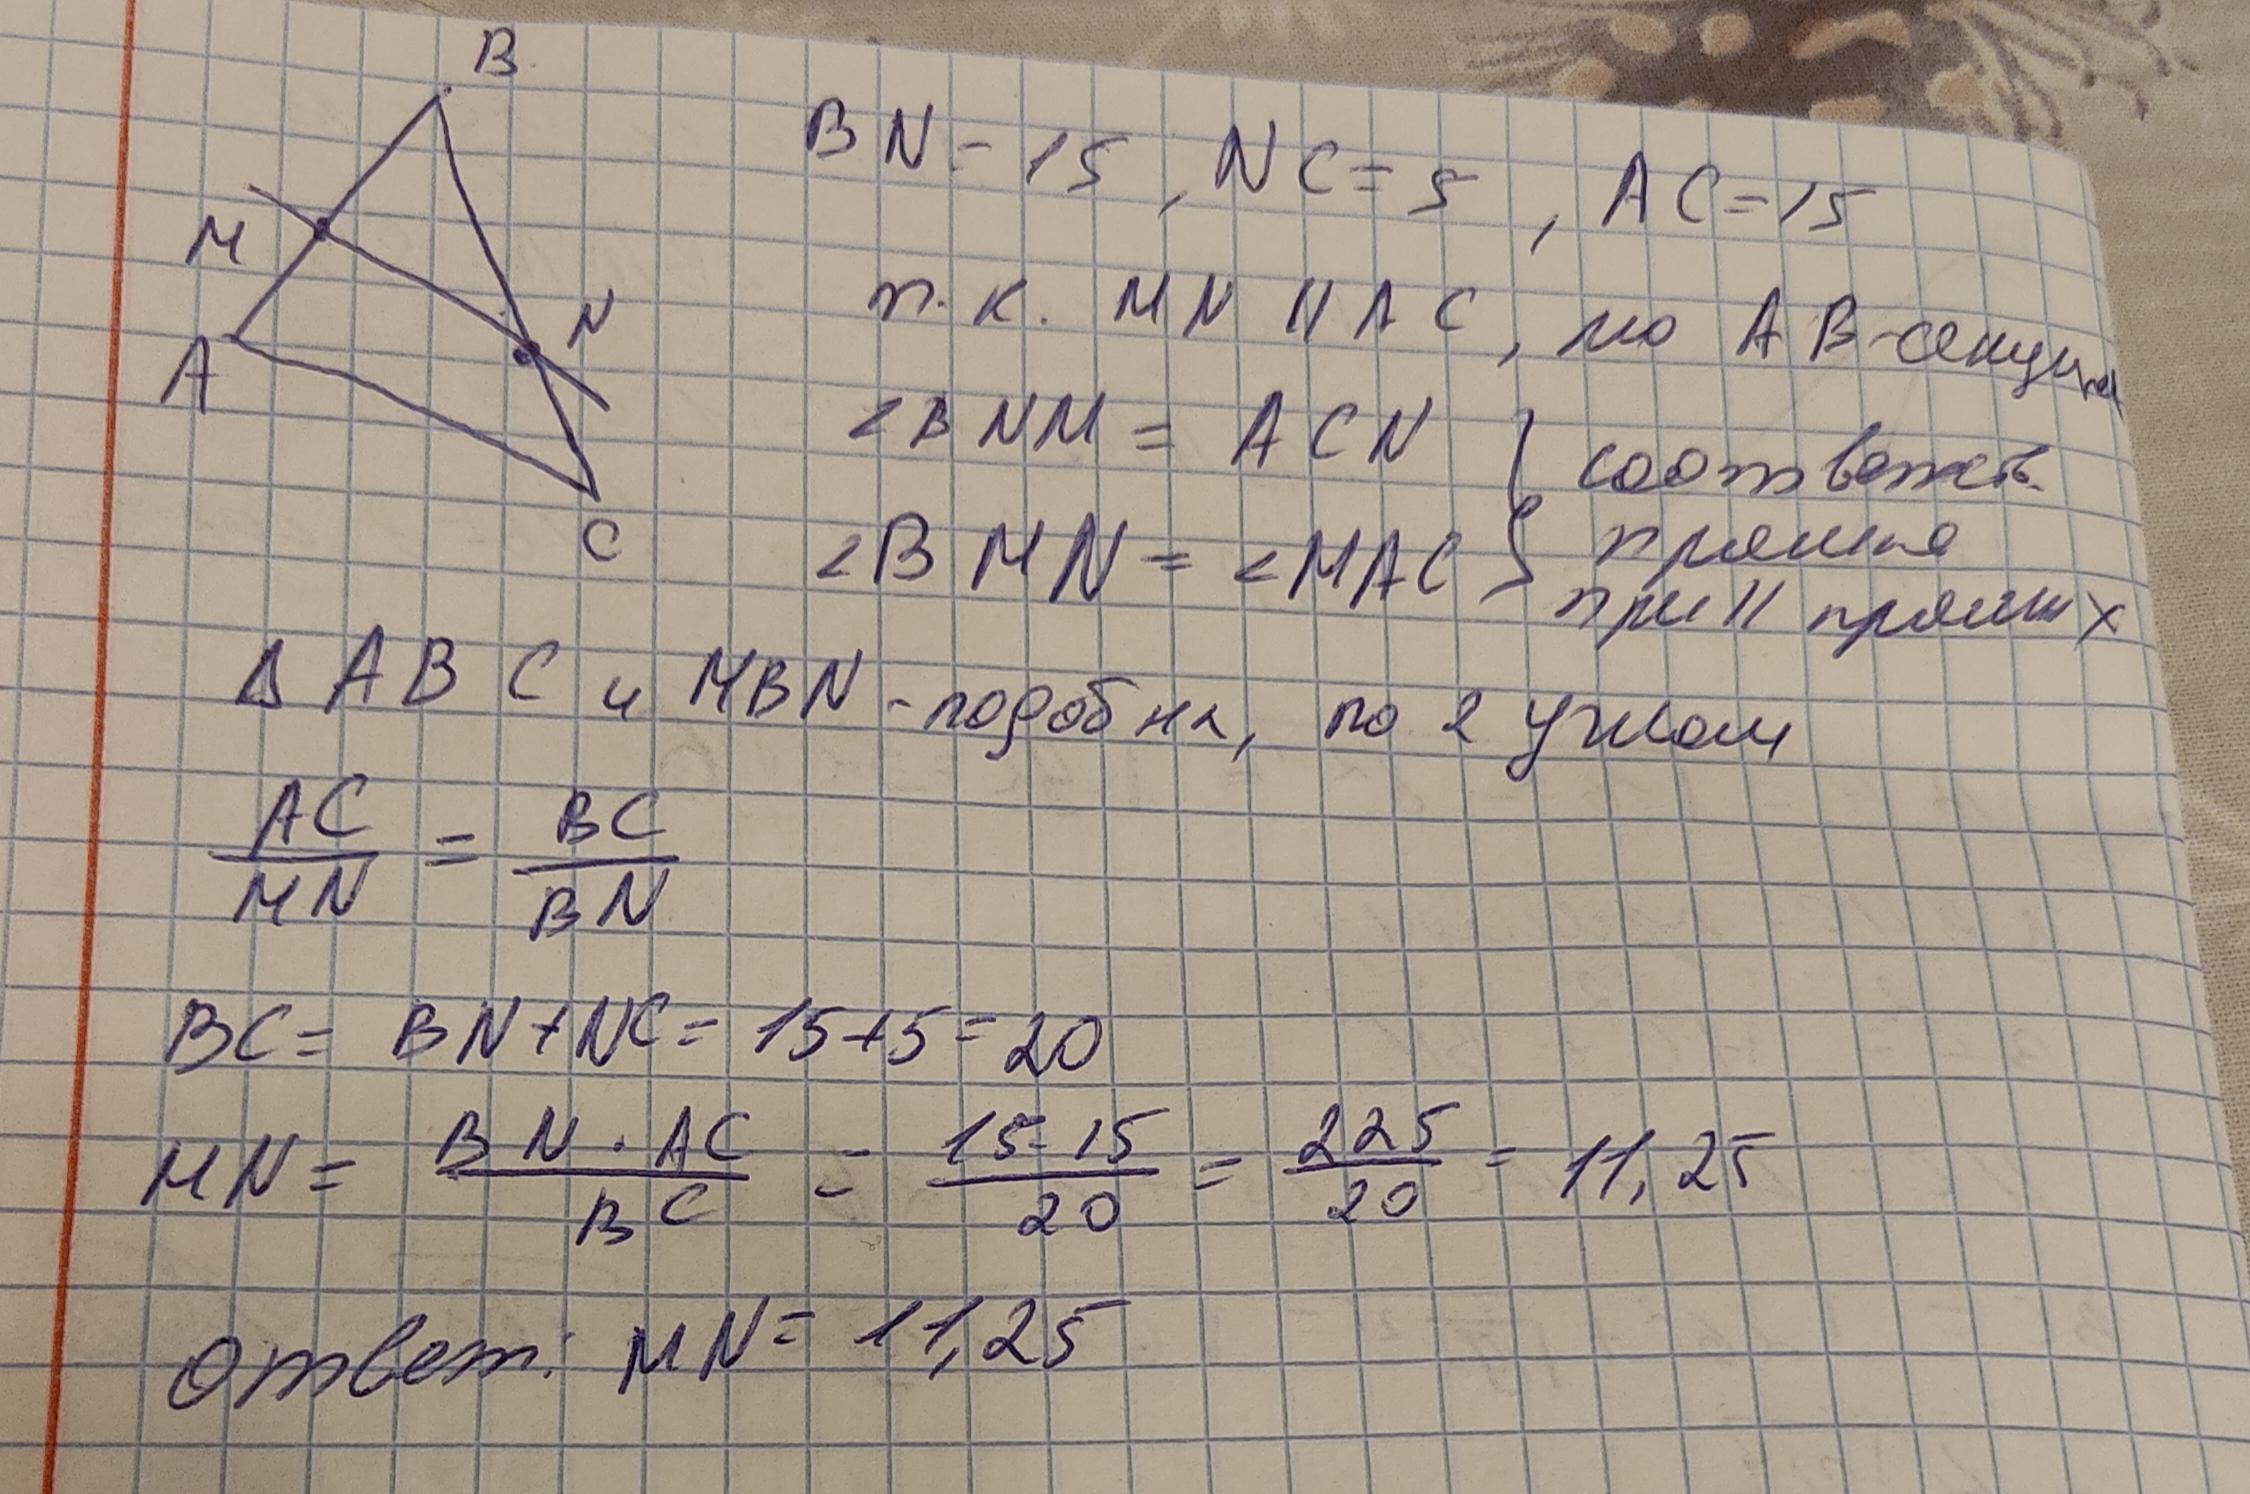 B
M
N
A
C
BN = 15, NC = 5, AC = 15
т.к. MN || AC, то AB - секущая
∠BNM = ACN
∠BMN = ∠MAC
} соответств.
прямые
при || прямых
Δ ABC и MBN - подобны, по 2 углам
AC/MN = BC/BN
BC = BN + NC = 15 + 5 = 20
MN = BN · AC / BC = 15 · 15 / 20 = 225/20 = 11,25
Ответ: MN = 11,25